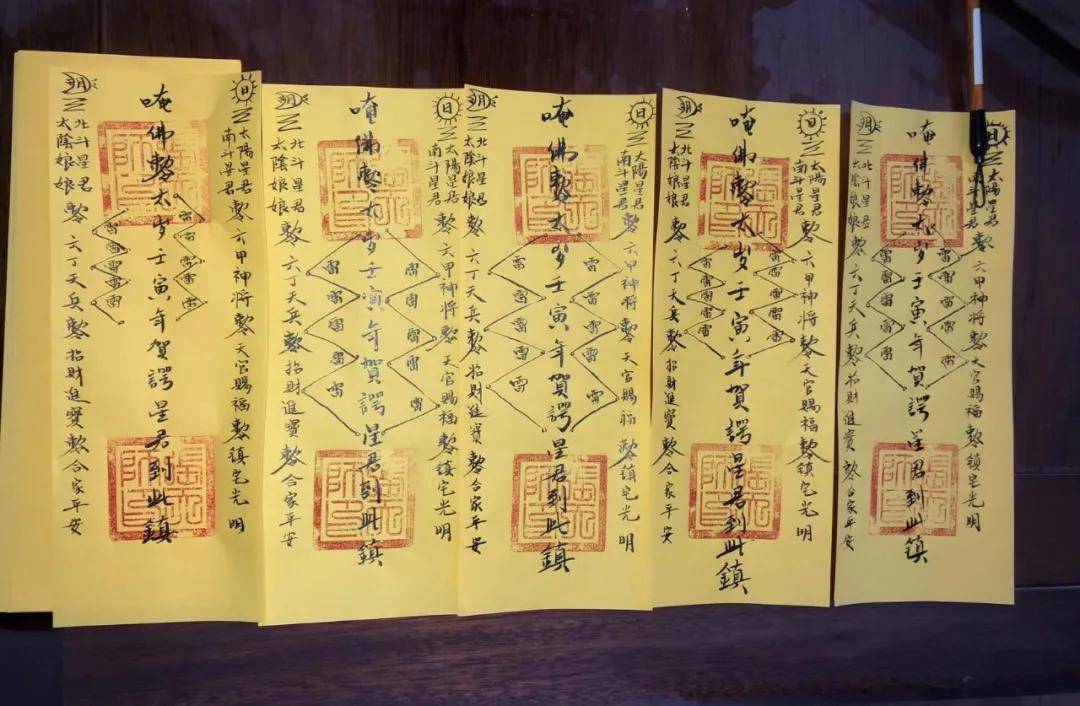 日
三
太陽星君
南斗星君
敕六甲神將敕天官賜福敕鎮宅光明
雷雷雷雷
唵佛敕太岁壬寅年賀諤星君到此鎮
雷雷雷雷
三
北斗星君
太陰娘娘
敕六丁天兵敕招財進寶敕合家平安
日
三
太陽星君
南斗星君
敕六甲神將敕天官賜福敕鎮宅光明
雷雷雷雷
唵佛敕太岁壬寅年賀諤星君到此鎮
雷雷雷雷
三
北斗星君
太陰娘娘
敕六丁天兵敕招財進寶敕合家平安
日
三
太陽星君
南斗星君
敕六甲神將敕天官賜福敕鎮宅光明
雷雷雷雷
唵佛敕太岁壬寅年賀諤星君到此鎮
雷雷雷雷
三
北斗星君
太陰娘娘
敕六丁天兵敕招財進寶敕合家平安
日
三
太陽星君
南斗星君
敕六甲神將敕天官賜福敕鎮宅光明
雷雷雷雷
唵佛敕太岁壬寅年賀諤星君到此鎮
雷雷雷雷
三
北斗星君
太陰娘娘
敕六丁天兵敕招財進寶敕合家平安
日
三
太陽星君
南斗星君
敕六甲神將敕天官賜福敕鎮宅光明
雷雷雷雷
唵佛敕太岁壬寅年賀諤星君到此鎮
雷雷雷雷
三
北斗星君
太陰娘娘
敕六丁天兵敕招財進寶敕合家平安